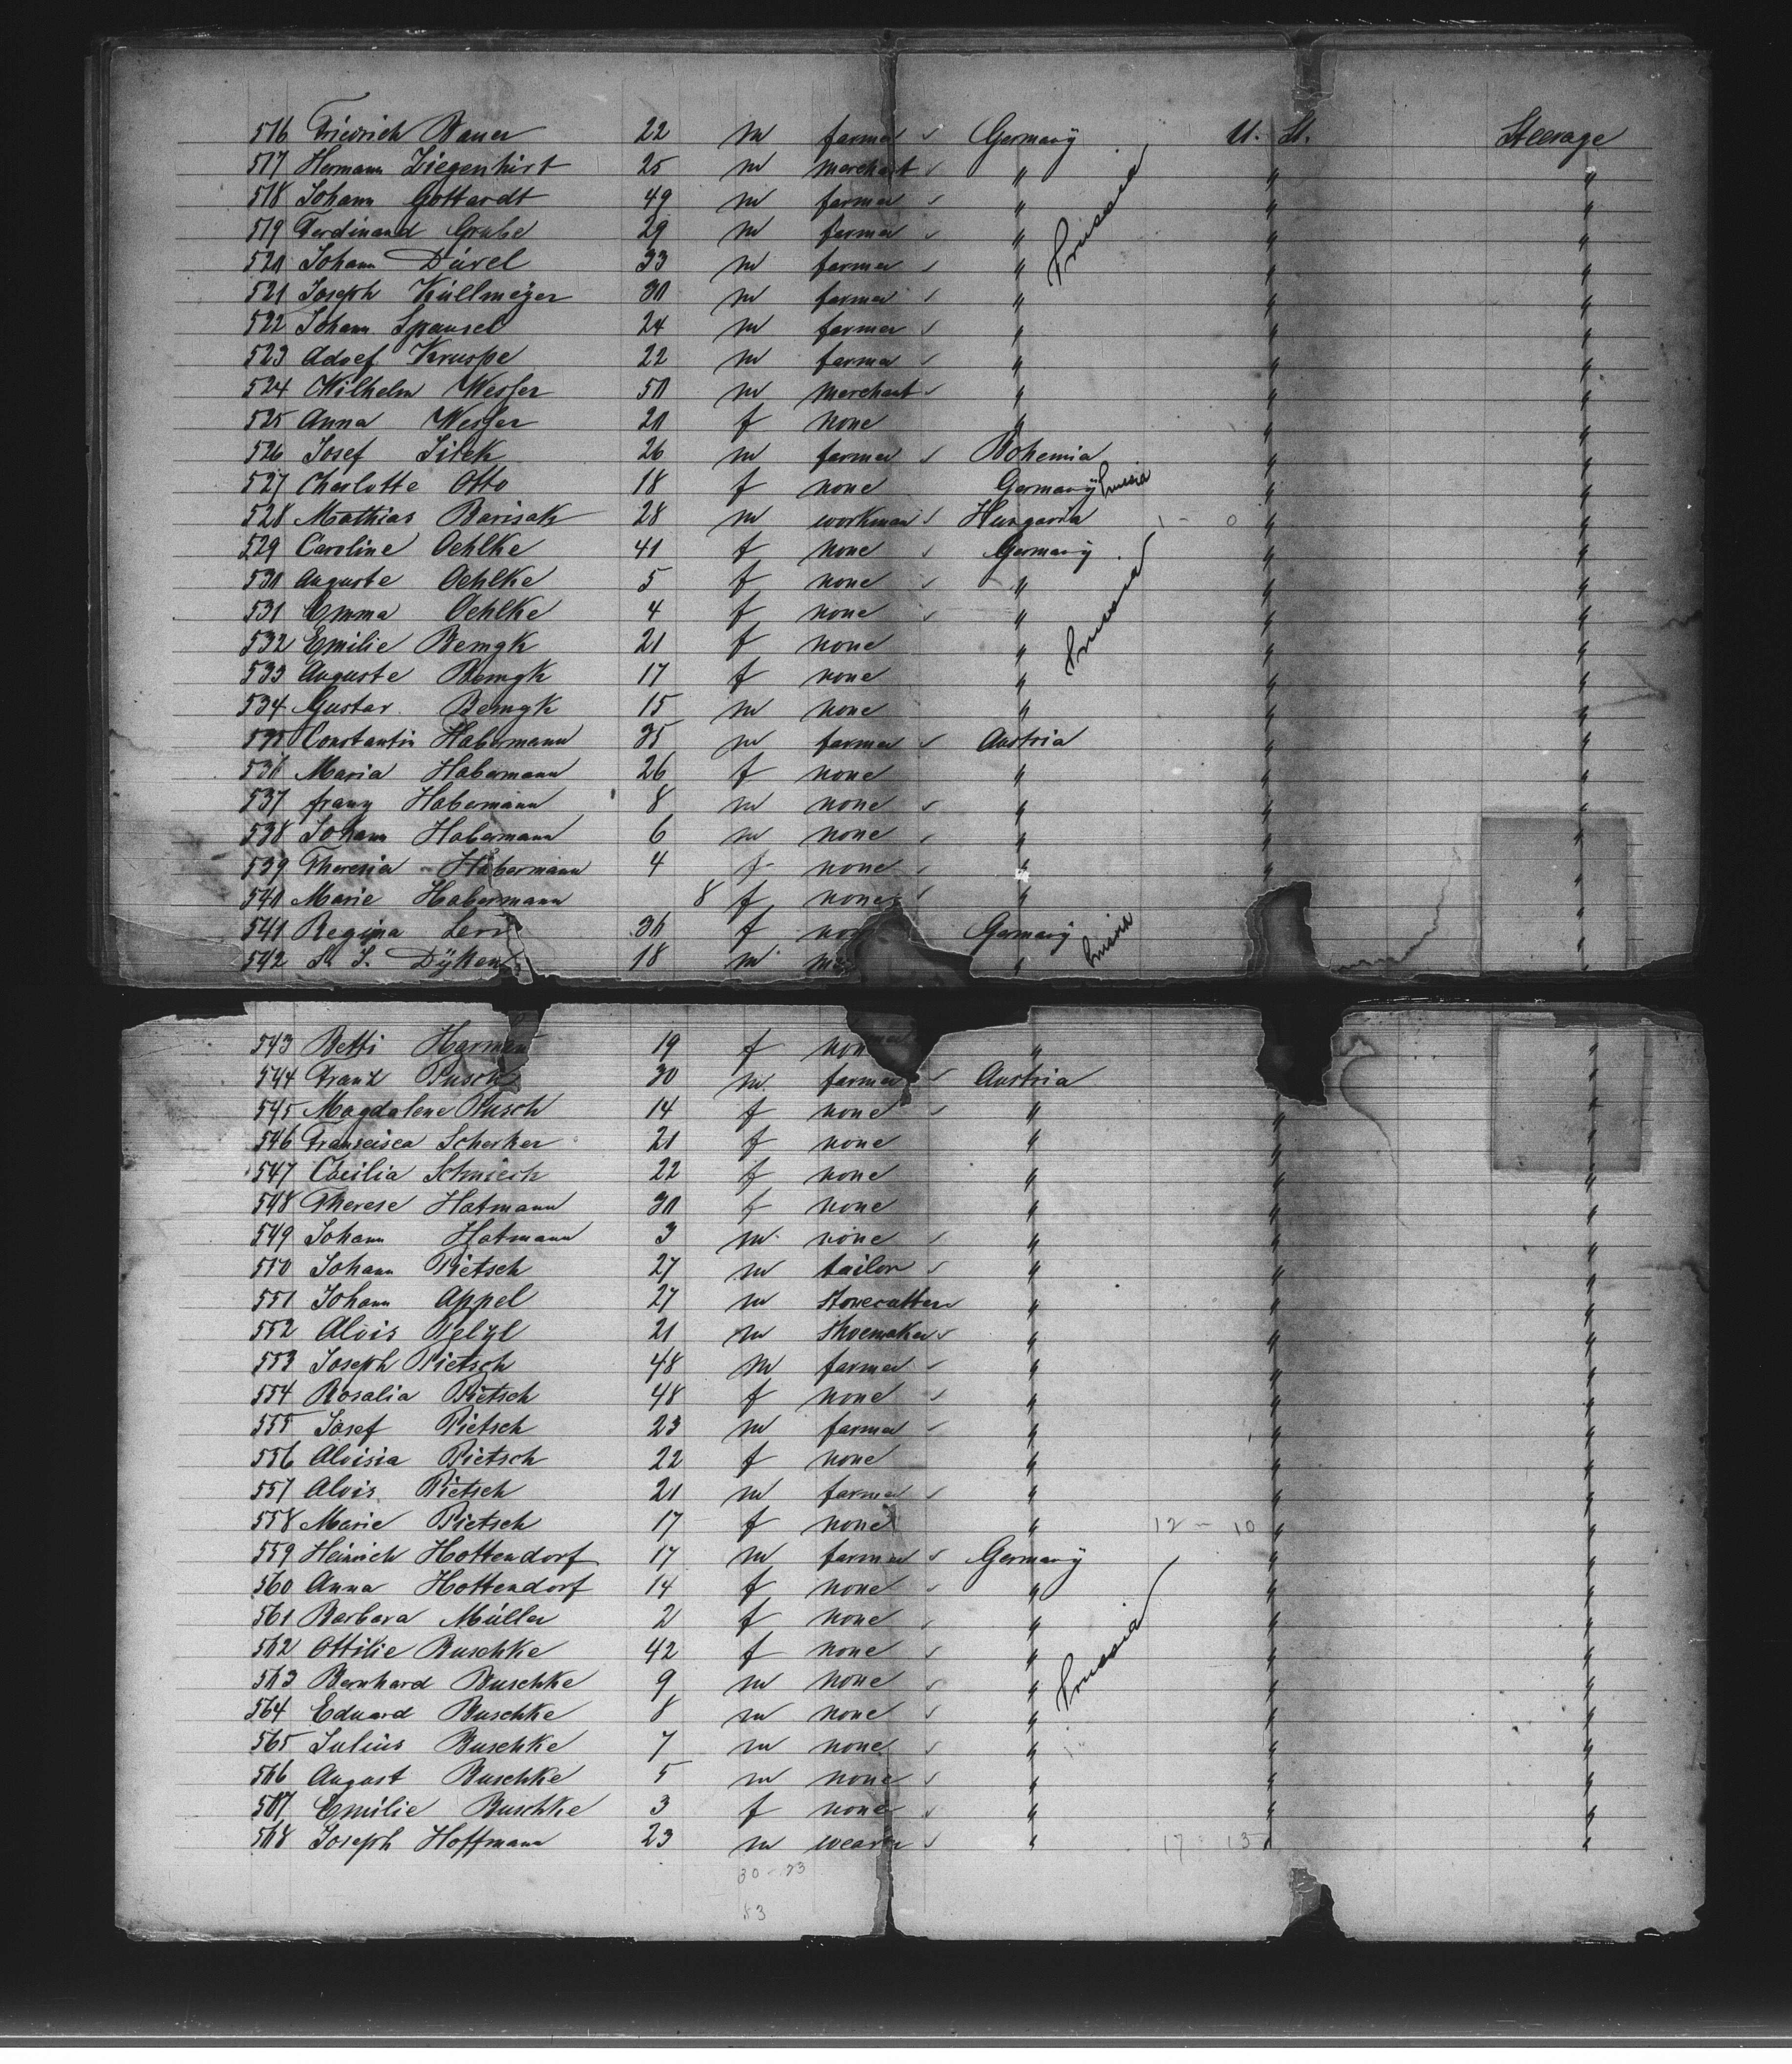 516 Friedrich Bauer 22 m farmer Germany U. St. Steerage
517 Hermann Ziegenhirt 25 m merchant " " "
518 Johann Gottardt 49 m farmer " " "
519 Ferdinand Grube 29 m farmer " Prussia " "
520 Johann Dürel 33 m farmer " " "
521 Joseph Küllmeyer 30 m farmer " " "
522 Johann Spansel 24 m farmer " " "
523 Adolf Kruspe 22 m farmer " " "
524 Wilhelm Wesser 50 m merchant " " "
525 Anna Wesser 20 f none " " "
526 Josef Jirek 26 m farmer Bohemia " "
527 Charlotte Otto 18 f none Germany Prussia " "
528 Mathias Barisak 28 m workman Hungaria 1 - 0 " "
529 Caroline Oehlke 41 f none Germany " "
530 Auguste Oehlke 5 f none " " "
531 Emma Oehlke 4 f none " Prussia " "
532 Emilie Bemgk 21 f none " " "
533 Auguste Bemgk 17 f none " " "
534 Gustav Bemgk 15 m none " " "
535 Constantin Habermann 35 m farmer Austria " "
536 Maria Habermann 26 f none " " "
537 Franz Habermann 8 m none " " "
538 Johann Habermann 6 m none " " "
539 Theresia Habermann 4 f none " "
540 Marie Habermann 8 f none " "
541 Regina 36 f Germany Prussia "
542 18 m " "
543 Betti 19 f none " "
544 Franz Pusch 30 m farmer Austria "
545 Magdalene Pusch 14 f none " " "
546 Franscisca Scherker 21 f none " " "
547 Cäcilia Schmiech 22 f none " " "
548 Therese Hatmann 30 f none " " "
549 Johann Hatmann 3 m none " " "
550 Johann Pietsch 27 m tailor " " "
551 Johann Appel 27 m stonecutter " " "
552 Alois Pelzl 21 m shoemaker " " "
553 Joseph Pietsch 48 m farmer " " "
554 Rosalia Pietsch 48 f none " " "
555 Josef Pietsch 23 m farmer " " "
556 Aloisia Pietsch 22 f none " " "
557 Alois Pietsch 21 m farmer " " "
558 Marie Pietsch 17 f none " 12 - 10 " "
559 Heinrich Hottendorf 17 m farmer Germany " "
560 Anna Hottendorf 14 f none " " "
561 Barbara Müller 2 f none " " "
562 Ottilie Buschke 42 f none " Prussia " "
563 Bernhard Buschke 9 m none " " "
564 Eduard Buschke 8 m none " " "
565 Julius Buschke 7 m none " " "
566 August Buschke 5 m none " " "
567 Emilie Buschke 3 f none " " "
568 Joseph Hoffmann 23 m weaver " 17 - 13 " "
30 - 23
53